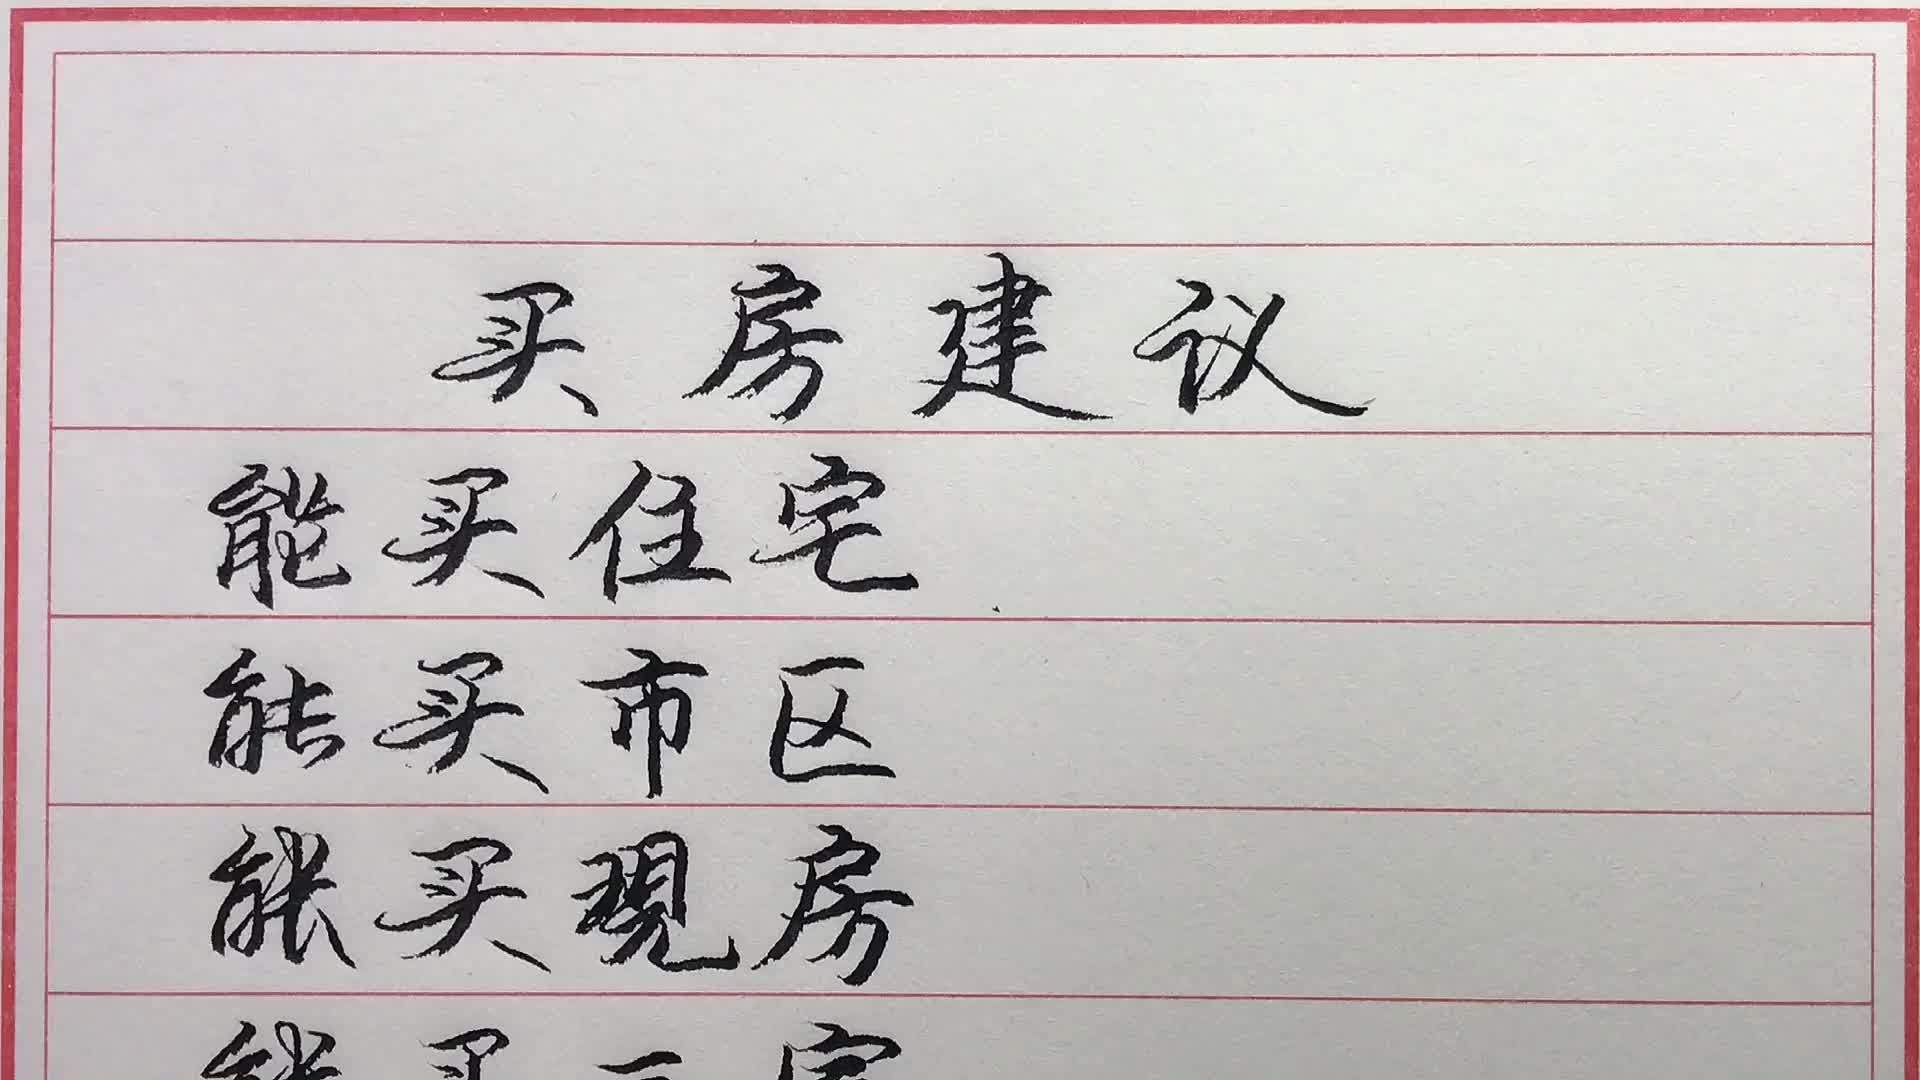 买房建议
能买住宅
能买市区
能买现房
能买